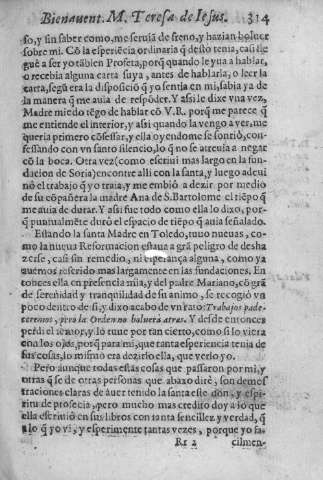 Bienauent. M. Teresa de Iesus. 314
so, y sin saber como, me seruia de freno, y hazian boluer
sobre mi. Cõ la esperiēcia ordinaria q̃ desto tenia, casi lle
guè a ser yo tãbien Profeta, porq̃ quando le yua a hablar,
o recebia alguna carta suya, antes de hablarla, o leer la
carta, segũ era la disposiciõ q̃ yo sentia en mi, sabia ya de
la manera q̃ me auia de respõder. Y assi le dixe vna vez,
Madre miedo tēgo de hablar cõ V. R. porq̃ me parece q̃
me entiende el interior, y assi quando la vengo a ver, me
queria primero cõfessar, y ella oyendome se sonriò, con-
fessando con vn santo silencio, lo q̃ no se atreuia a negar
cõ la boca. Otra vez (como escriui mas largo en la fun-
dacion de Soria) encontre alli con la santa, y luego adeui
nò el trabajo q̃ yo traia, y me embiò a dezir por medio
de su cõpañera la madre Ana de S. Bartolome el tiēpo q̃
me auia de durar. Y assi fue todo como ella lo dixo, por-
q̃ puntualmēte durò el espacio de tiēpo q̃ auia señalado.
Estando la santa Madre en Toledo, tuuo nueuas, co-
mo la nueua Reformacion estaua a grã peligro de desha
zerse, casi sin remedio, ni esperança alguna, como ya
auemos referido mas largamente en las fundaciones. En
tonces ella en presencia mia, y del padre Mariano, cõ grã
de serenidad y tranquilidad de su animo, se recogiò vn
poco dentro de si, y dixo acabo de vn rato: Trabajos pade-
ceremos, pero la Orden no boluerà atras. Y desde entonces
perdi el temor, y lo tuue por tan cierto, como si lo viera
con los ojos, porq̃ para mi, que tanta esperiencia tenia de
sus cosas, lo mismo era dezirlo ella, que verlo yo.
Pero aunque todas estas cosas que passaron por mi, y
otras q̃ se de otras personas que abaxo dirè, son demos
traciones claras de auer tenido la santa este don, y espi-
ritu de profecia, pero mucho mas credito doy a lo que
ella escriuiò en sus libros con tanta senzillez y verdad, q̃
a lo q̃ yo vi, y esperimente tantas vezes, porque yo fa-
Rr 2 cilmen-